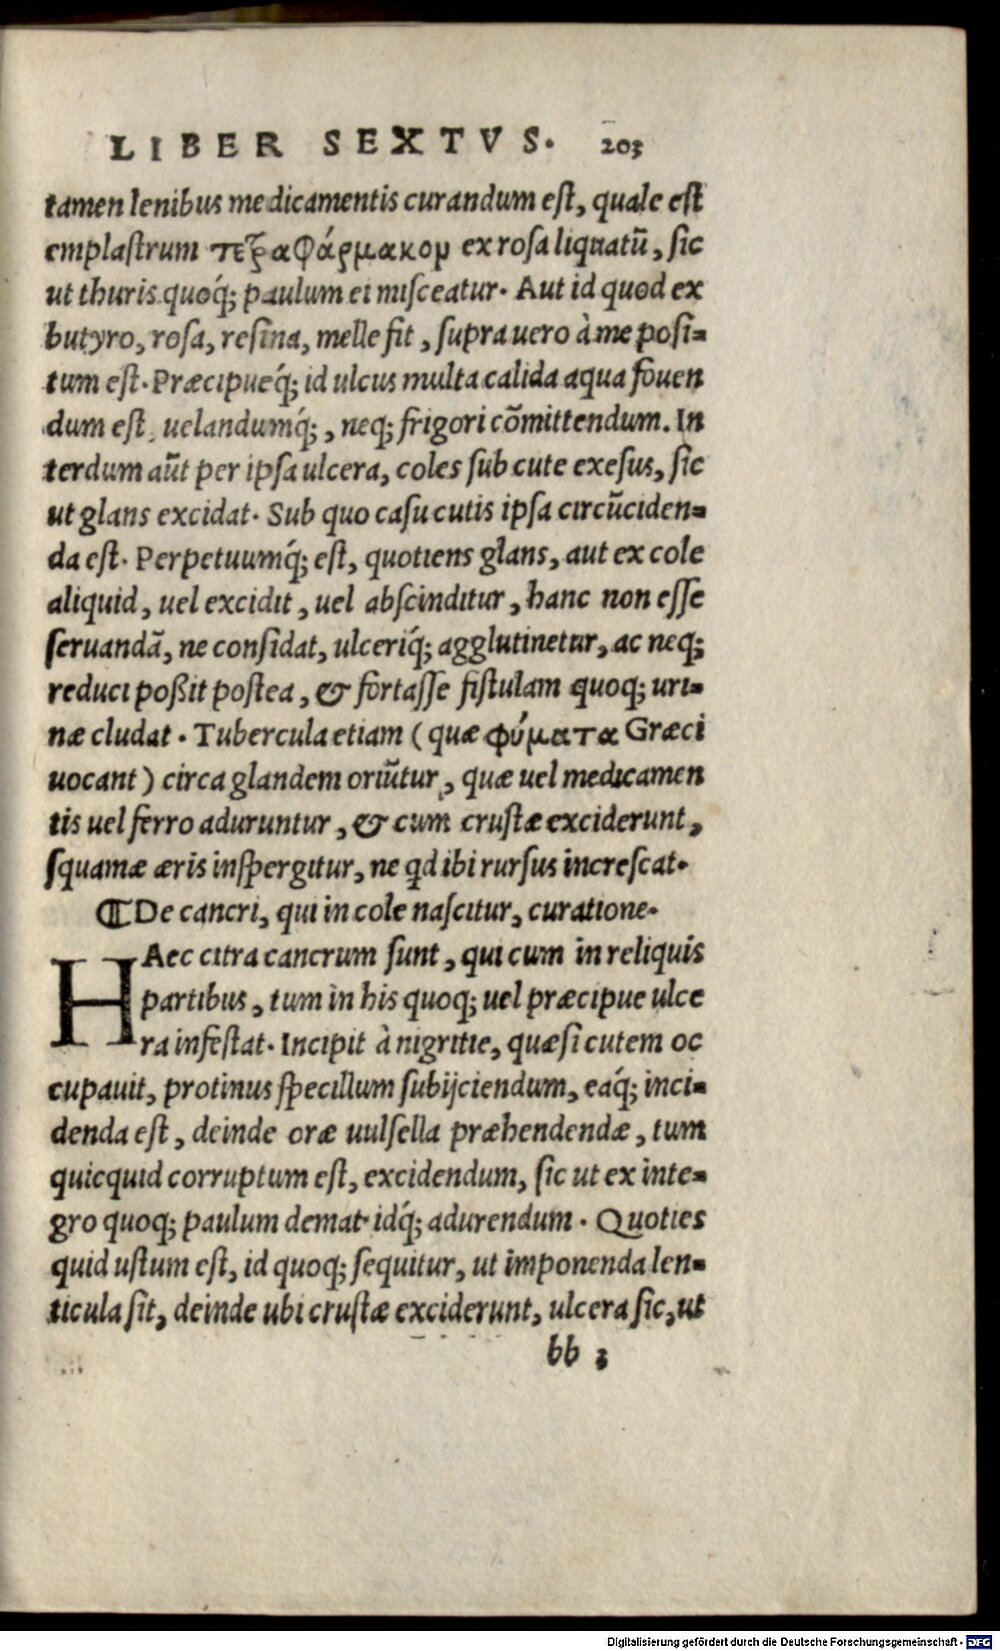 LIBER SEXTVS. 203
tamen lenibus medicamentis curandum est, quale est
emplastrum τετραφάρμακον ex rosa liquatũ, sic
ut thuris quoq́; paulum ei misceatur. Aut id quod ex
butyro, rosa, resina, melle fit, supra uero à me posi-
tum est. Præcipueq́; id ulcus multa calida aqua fouen
dum est, uelandumq́;, neq; frigori cõmittendum. In
terdum aũt per ipsa ulcera, coles sub cute exesus, sic
ut glans excidat. Sub quo casu cutis ipsa circũciden-
da est. Perpetuumq́; est, quotiens glans, aut ex cole
aliquid, uel excidit, uel abscinditur, hanc non esse
seruandã, ne considat, ulceriq́; agglutinetur, ac neq;
reduci poßit postea, & fortasse fistulam quoq; uri-
næ cludat. Tubercula etiam (quæ φύματα Græci
uocant) circa glandem oriũtur, quæ uel medicamen
tis uel ferro aduruntur, & cum crustæ exciderunt,
squamæ æris inspergitur, ne qd ibi rursus increscat.
¶De cancri, qui in cole nascitur, curatione.
HAec citra cancrum sunt, qui cum in reliquis
partibus, tum in his quoq; uel præcipue ulce
ra infestat. Incipit à nigritie, quæ si cutem oc
cupauit, protinus specillum subijciendum, eaq́; inci-
denda est, deinde oræ uulsella præhendendæ, tum
quicquid corruptum est, excidendum, sic ut ex inte-
gro quoq; paulum demat idq́; adurendum. Quoties
quid ustum est, id quoq; sequitur, ut imponenda len-
ticula sit, deinde ubi crustæ exciderunt, ulcera sic, ut
bb 3
Digitalisierung gefördert durch die Deutsche Forschungsgemeinschaft - DFG